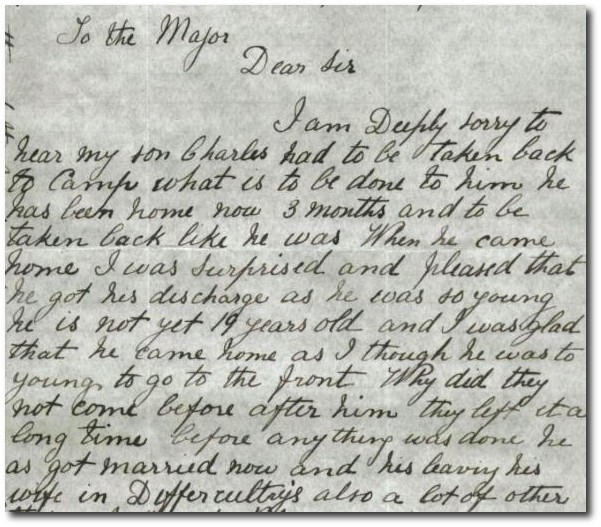 To the Major
Dear Sir
I am Deeply sorry to
hear my son Charles had to be taken back
to Camp what is to be done to him he
has been home now 3 months and to be
taken back like he was When he came
home I was surprised and pleased that
he got his discharge as he was so young
he is not yet 19 years old and I was glad
that he came home as I though he was to
young to go to the front Why did they
not come before after him they left it a
long time before anything was done he
as got married now and his leaving his
wife in Differcultys also a lot of other